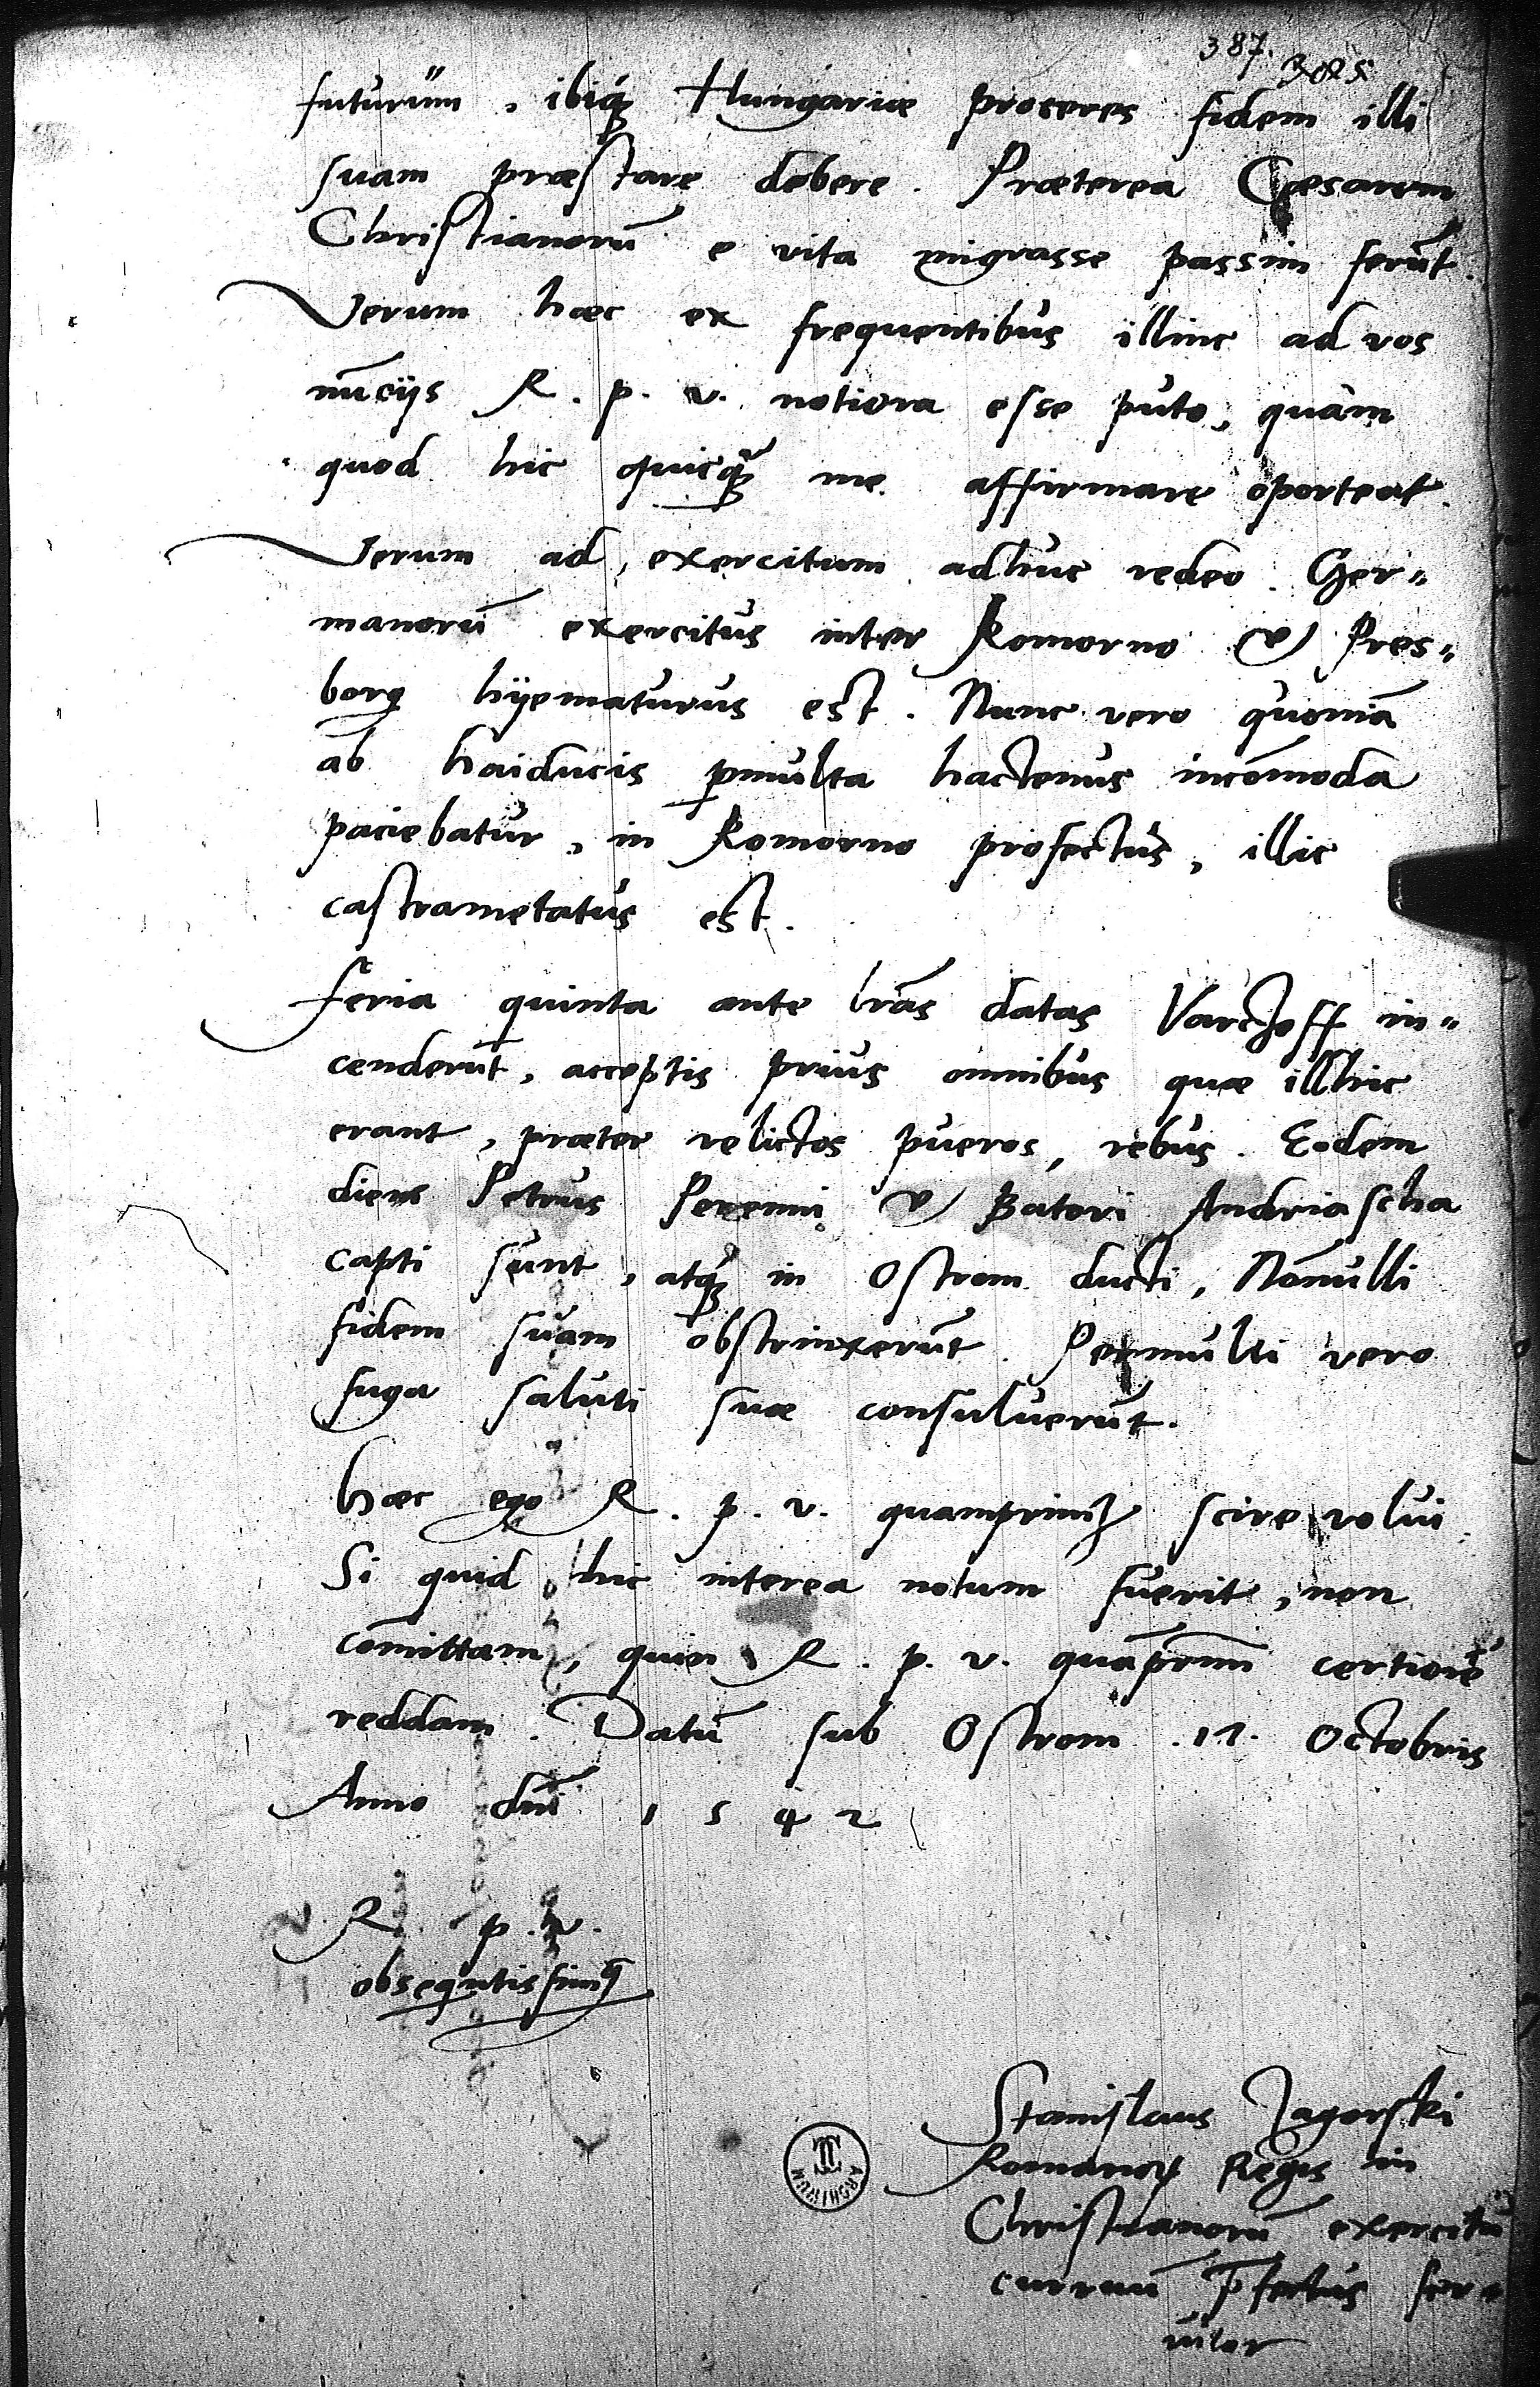 387.
futurum, ibiq́ꝫ Hungariæ proceres fidem illi
suam præstare debere. Præterea Cæsarem
Christianorū e vita migrasse passim ferūt.
Verum hæc ex frequentibus illinc ad vos
nūciis R. p. v. notiora esse puto, quàm
quod hic quicq̃ꝫ me affirmare oporteat.
Verum ad exercitum adhuc redeo. Ger„
manorū exercitus inter Komorno & Pres„
borg hyematurus est. Nunc vero quoniā
ab haiducis ꝑmulta hactenus incōmoda
paciebatur, in Komorno profectus, illic
castrametatus est.
Feria quinta ante lrās datas Varchoff in„
cenderūt, acceptis prius omnibus quæ illhic
erant, præter relictos pueros, rebus. Eodem
diem Petrus Peremi & Batori Andriascha
capti sunt, atq́ꝫ in Ostrom ducti, Nōnulli
fidem suam obstrinxerūt. Permulti vero
fuga saluti suæ consuluerūt.
Hæc ego R. p. v. quamprimꝫ scire volui.
Si quid hic interea notum fuerit, non
cōmittam, quin R. p. v. quāprim̄ certiorē
reddam. Datū sub Ostrom .17. Octobris
Anno dnī 1542
R. p. v.
obsequtissimꝯ
Stanislaus Zagorski
Romanoꝝ Regis in
Christianorū exercitu
curruū p̄fectus ser„
uitor
ARCHIWUM